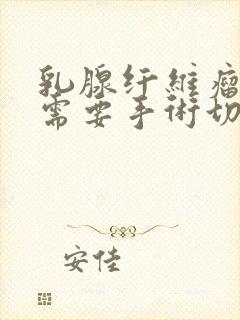 乳腺纤維瘤
需要手術切
安佳